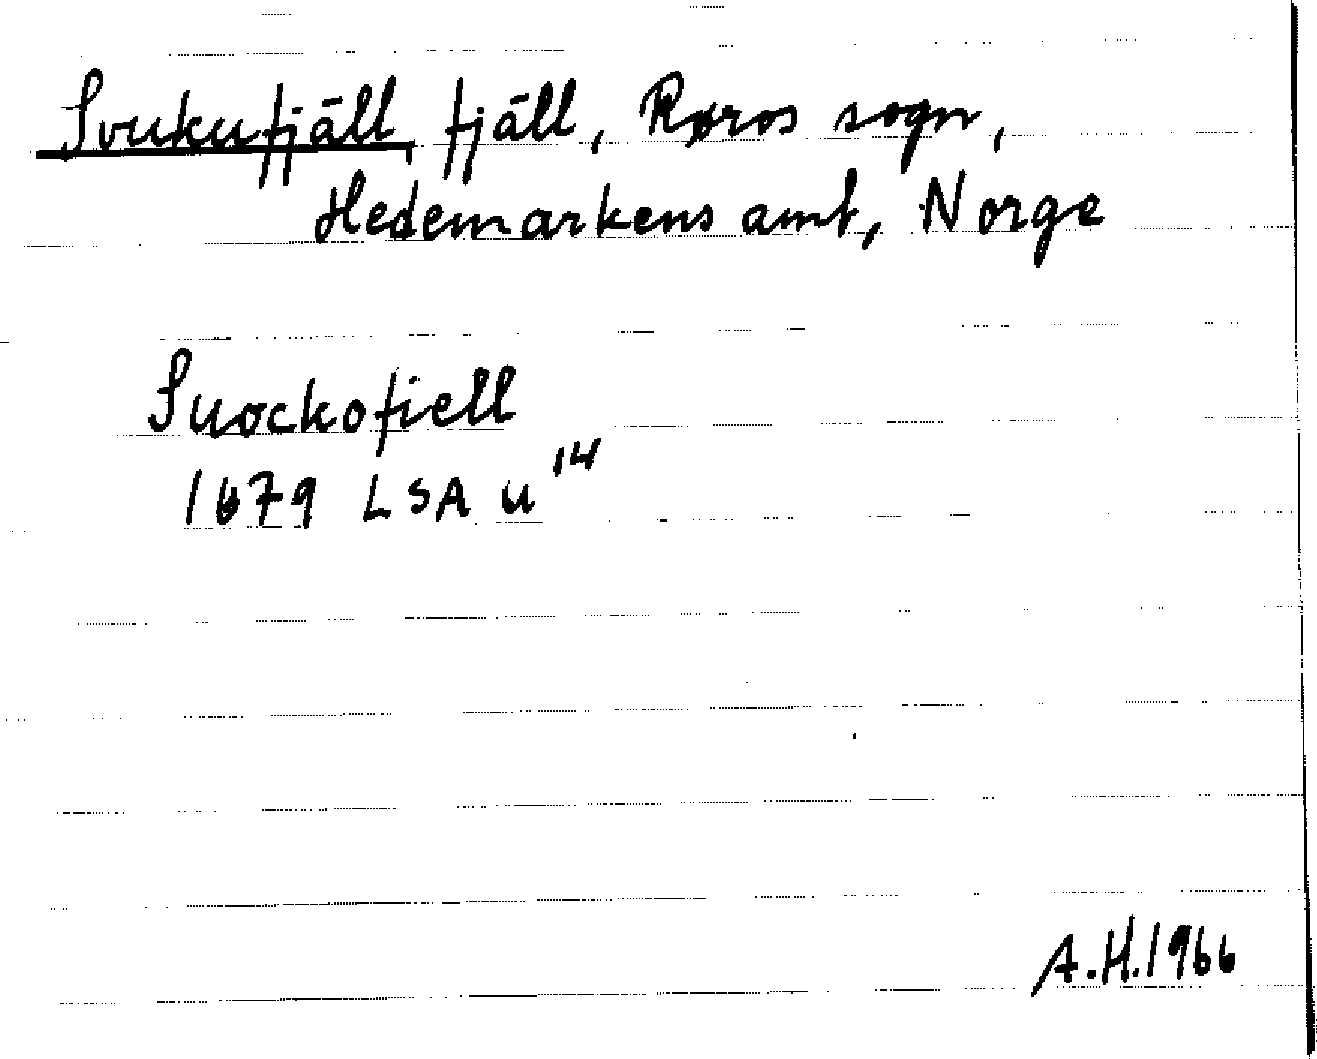 Svukufjäll, fjäll, Røros sogn,
Hedemarkens amt, Norge
Suockofiell
1679 LSA u¹⁴
A.H.1966